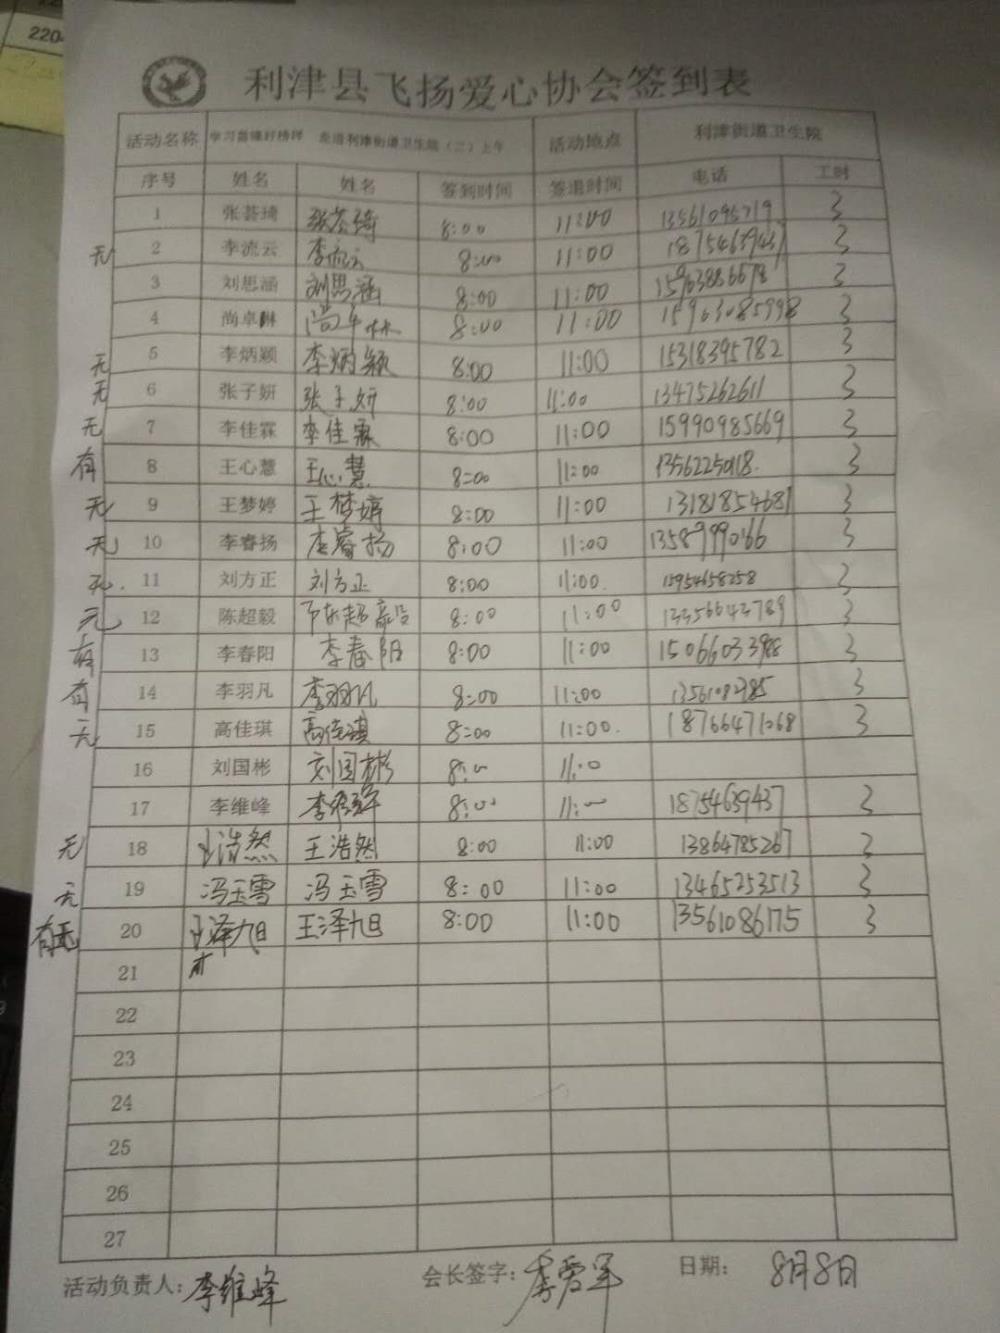 220
利津县飞扬爱心协会签到表
活动名称 学习雷锋好榜样 走进利津街道卫生院（三）上午 活动地点 利津街道卫生院
序号 姓名 姓名 签到时间 签退时间 电话 工时
1 张荟琦 张荟琦 8:00 11:00 13561095719 3
无 2 李流云 李流云 8:00 11:00 3
3 刘思涵 刘思涵 8:00 11:00 15963886678 3
4 尚卓琳 尚卓林 8:00 11:00 15963085998 3
无 5 李炳颖 李炳颖 8:00 11:00 15318395782 3
无 6 张子妍 张子妍 8:00 11:00 13475262611 3
无 7 李佳霖 李佳霖 8:00 11:00 15990985669 3
有 8 王心慧 王心慧 8:00 11:00 3
无 9 王梦婷 王梦婷 8:00 11:00 13181854681 3
无 10 李睿扬 李睿扬 8:00 11:00 3
无 11 刘方正 刘方正 8:00 11:00 15954658258 3
无 12 陈超毅 陈超毅 8:00 11:00 13356643789 3
有 13 李春阳 李春阳 8:00 11:00 15066033988 3
有 14 李羽凡 李羽凡 8:00 11:00 3
无 15 高佳琪 高佳琪 8:00 11:00 18766471068 3
16 刘国彬 刘国彬 8:00 11:00
17 李维峰 李维峰 8:00 11:00 18754639437 3
无 18 王浩然 王浩然 8:00 11:00 13864785267 3
无 19 冯玉雪 冯玉雪 8:00 11:00 13465253513 3
有无 20 王泽旭 王泽旭 8:00 11:00 13561086175 3
21
22
23
24
25
26
27
活动负责人: 李维峰 会长签字: 李爱军 日期: 8月8日